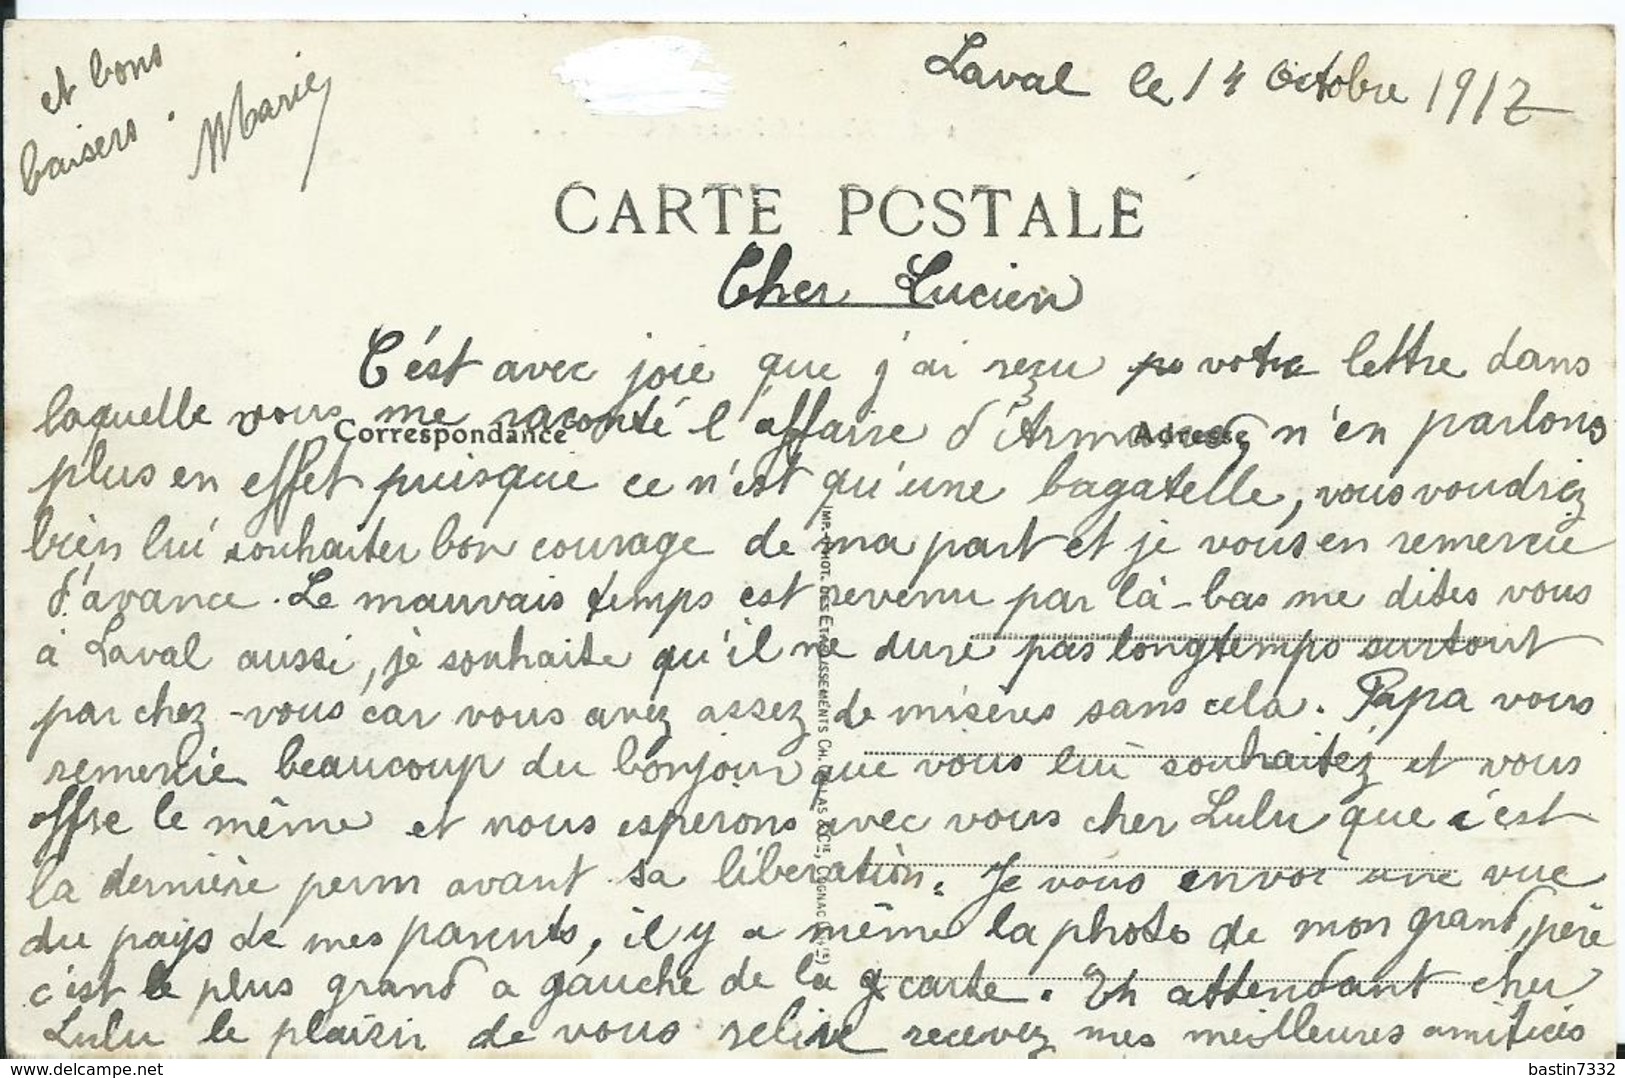 Laval le 14 Octobre 1917
CARTE POSTALE
Cher Lucien
C'est avec joie que j'ai reçu votre lettre dans
laquelle vous me raconté l'affaire d'Armand, n'en parlons
Correspondance
Adresse
plus en effet puisque ce n'est qu'une bagatelle, vous voudriez
bien lui souhaiter bon courage de ma part et je vous en remercie
d'avance. Le mauvais temps est revenu par là-bas me dites vous
à Laval aussi, je souhaite qu'il ne dure pas longtemps surtout
par chez-vous car vous avez assez de misères sans cela. Papa vous
remercie beaucoup du bonjour que vous lui souhaitez et vous
offre le même et nous esperons avec vous cher Lulu que c'est
la dernière perm avant sa libération. Je vous envoi une vue
du pays de mes parents, il y a même la photo de mon grand, père
c'est le plus grand a gauche de la carte. En attendant cher
Lulu le plaisir de vous relire recevez mes meilleures amitiés
et bons
baisers.
Marie
IMP. PHOT. DES ETABLISSEMENTS CH. COLLAS & Cie, COGNAC
bastin7332